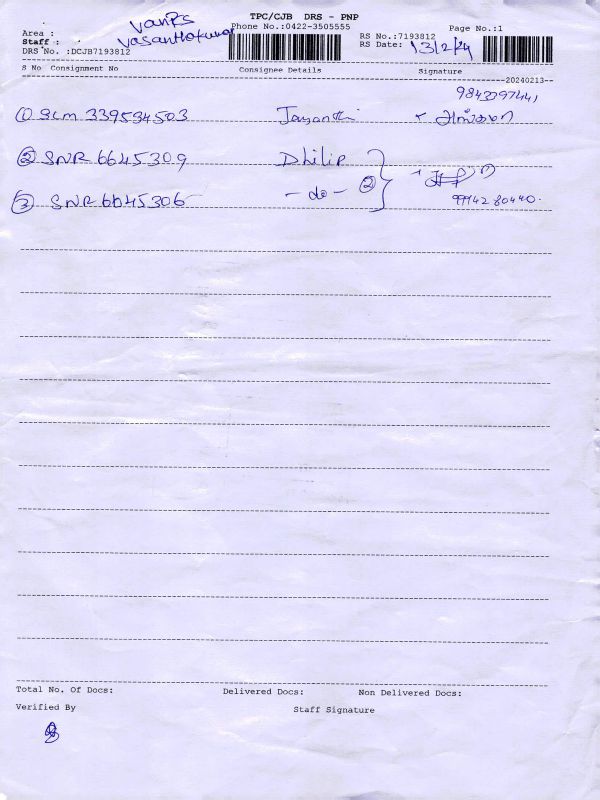 TPC/CJB DRS - PNP
Phone No.:0422-3505555
Page No.:1
Area :
Staff : Vasanthakumar
RS No.:7193812
DRS No. :DCJB7193812
RS Date: 13/2/24
S No Consignment No Consignee Details Signature
20240213
① SLM 339534503 Jayanthi
② SNR 6645309 Dhilip
③ SNR 6645306 - do - ②
9994280440.
Total No. Of Docs: Delivered Docs: Non Delivered Docs:
Verified By Staff Signature